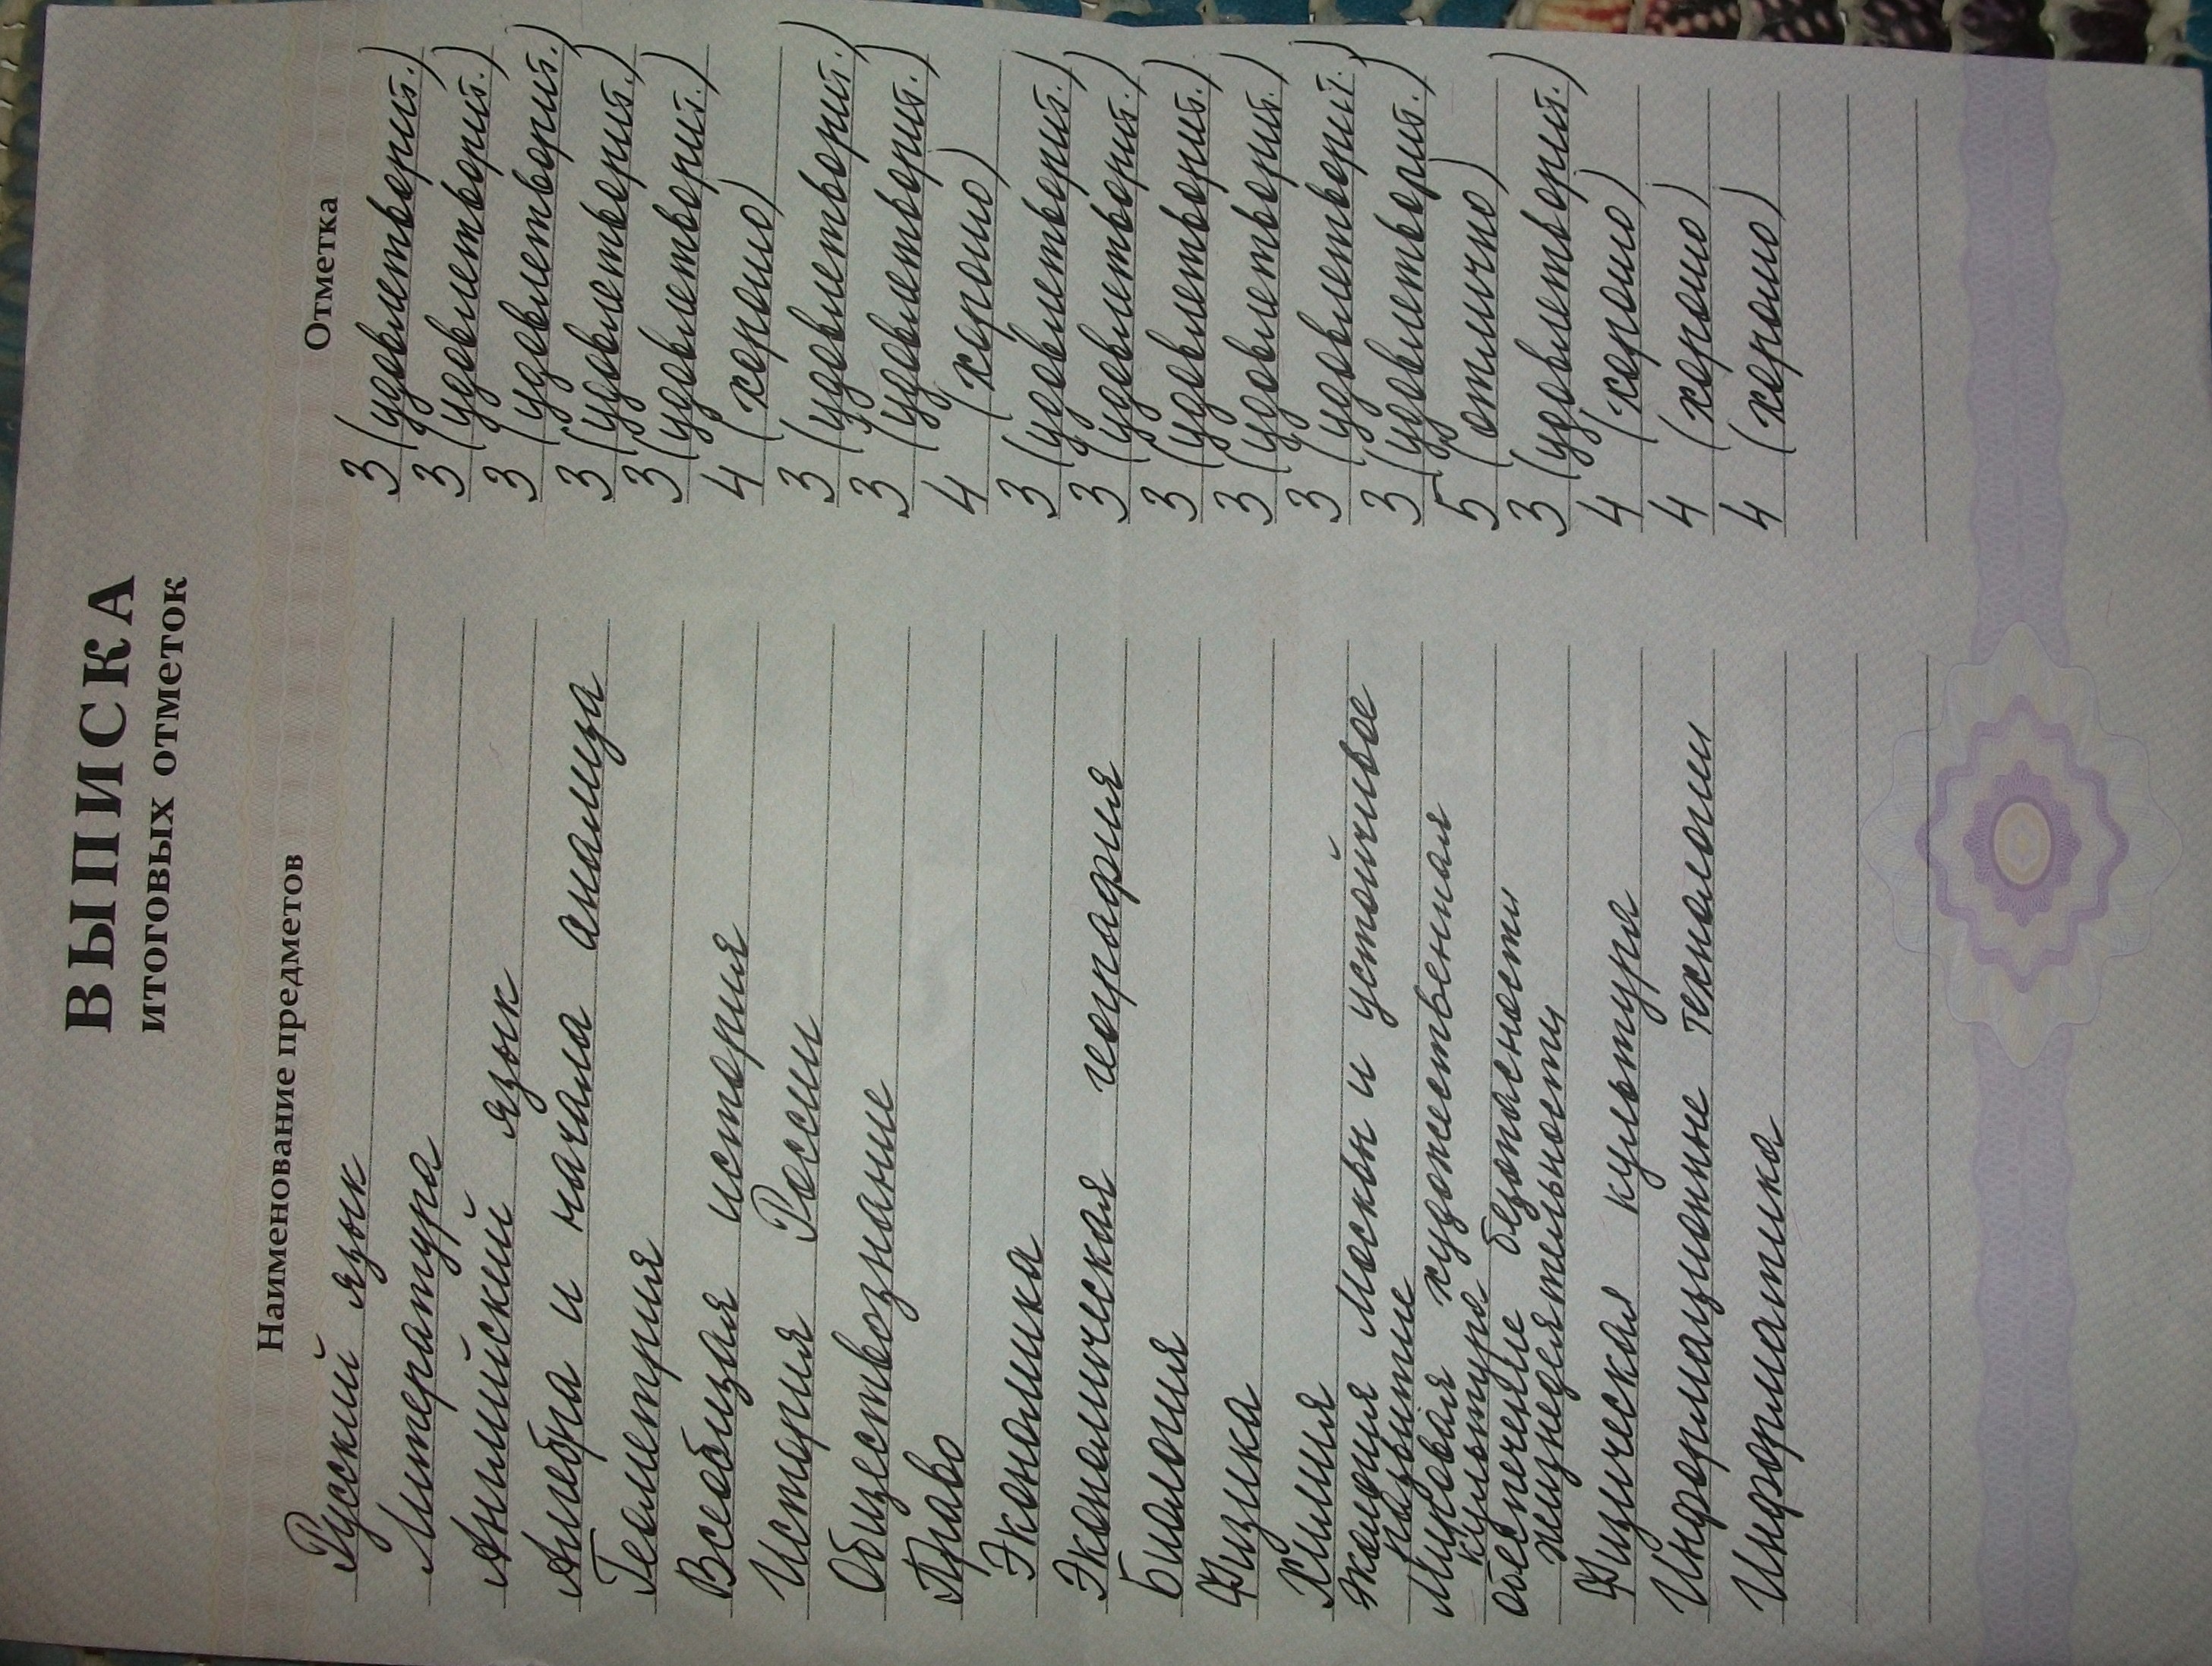 ВЫПИСКА
ИТОГОВЫХ ОТМЕТОК
Наименование предметов Отметка
Русский язык 3 (удовлетворит.)
Литература 3 (удовлетворит.)
Английский язык 3 (удовлетворит.)
Алгебра и начала анализа 3 (удовлетворит.)
Геометрия 3 (удовлетворит.)
Всеобщая история 4 (хорошо)
История России 3 (удовлетворит.)
Обществознание 3 (удовлетворит.)
Право 4 (хорошо)
Экономика 3 (удовлетворит.)
Экономическая география 3 (удовлетворит.)
Биология 3 (удовлетворит.)
Физика 3 (удовлетворит.)
Химия 3 (удовлетворит.)
Экология Москвы и устойчивое
развитие 3 (удовлетворит.)
Мировая художественная
культура 5 (отлично)
обеспечение безопасности
жизнедеятельности 3 (удовлетворит.)
Физическая культура 4 (хорошо)
Информационные технологии 4 (хорошо)
Информатика 4 (хорошо)